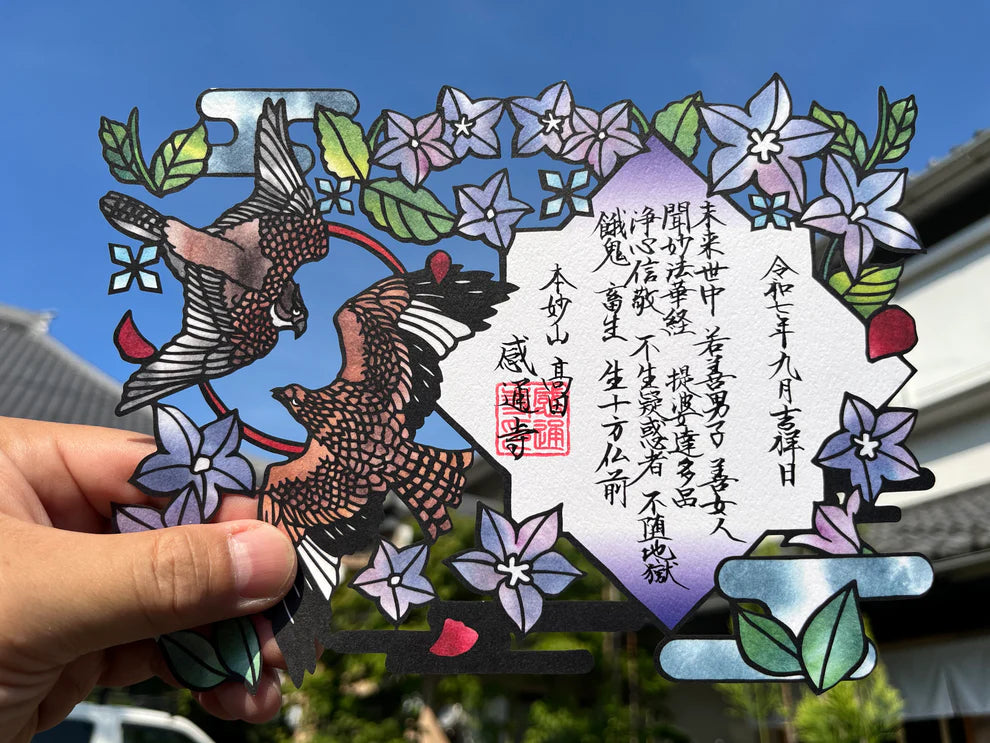 令和七年九月吉祥日
未来世中 若善男子 善女人
聞妙法華経 提婆達多品
浄心信敬 不生疑惑者 不堕地獄
餓鬼 畜生 生十方仏前
本妙山 髙田
感通寺